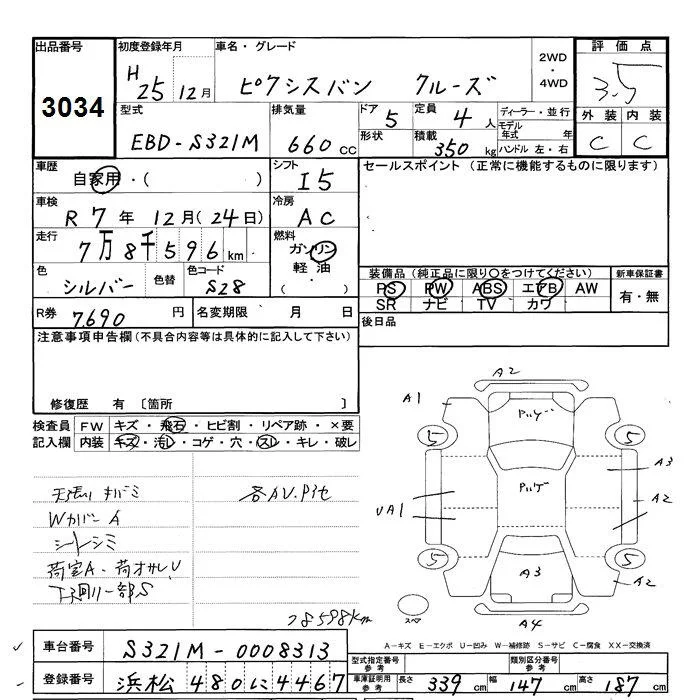 出品番号 3034
初度登録年月 H25年12月
車名・グレード ピクシスバン クルーズ
2WD・4WD
評価点 3.5
外装 C 内装 C
型式 EBD-S321M
排気量 660cc
ドア 5 形状
定員 4人
積載 350kg
ディーラー・並行
モデル年式 年
ハンドル 左・右
車歴 自家用・( )
シフト I5
セールスポイント (正常に機能するものに限ります)
車検 R7年12月(24日)
冷房 AC
走行 7万8千596km
燃料 ガソリン 軽油 ( )
色 シルバー 色替 色コード S28
装備品(純正品に限り○をつけてください)
PS PW ABS エアB AW
SR ナビ TV カワ
新車保証書 有・無
R券 7690円 名変期限 月 日
後日品
注意事項申告欄(不具合内容等は具体的に記入して下さい)
修復歴 有 〔箇所 〕
検査員記入欄
FW キズ・飛石・ヒビ割・リペア跡・×要
内装 キズ・汚レ・コゲ・穴・スレ・キレ・破レ
Wカバー A
シートシミ
下廻り一部S
78598km
A2
A1
5 5
A3
A2
UA1
5 5
A3
A2
スペア
A4
A-キズ E-エクボ U-凹み W-補修跡 S-サビ C-腐食 XX-交換済
車台番号 S321M-0008313
型式指定番号参考 類別区分番号参考
登録番号 浜松480に4467
車庫証明用参考 長さ 339cm 幅 147cm 高さ 187cm